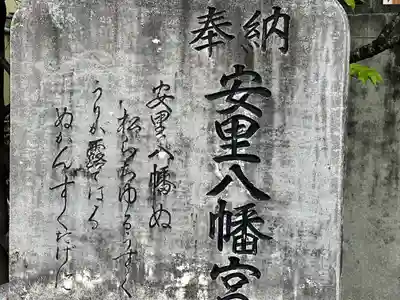 奉納
安里八幡宮
安里八幡ぬ
松らちゆるうすく
うりか露てはる
ぬかんすくたけに